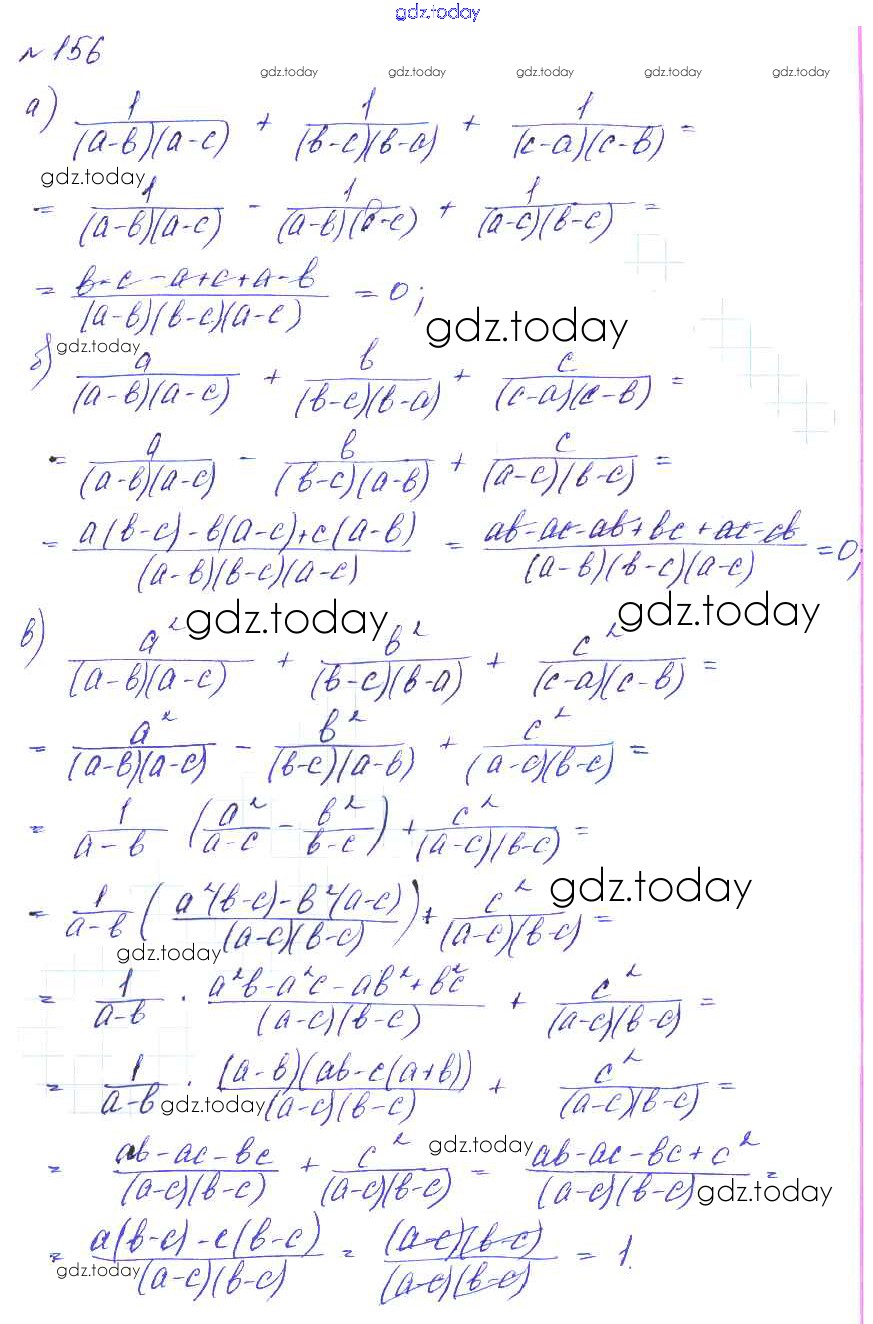 gdz.today
№ 156
gdz.today gdz.today gdz.today gdz.today gdz.today
а) 1/((a-b)(a-c)) + 1/((b-c)(b-a)) + 1/((c-a)(c-b)) =
gdz.today
= 1/((a-b)(a-c)) - 1/((a-b)(b-c)) + 1/((a-c)(b-c)) =
= (b-c-a+c+a-b)/((a-b)(b-c)(a-c)) = 0;
gdz.today
gdz.today
б) a/((a-b)(a-c)) + b/((b-c)(b-a)) + c/((c-a)(c-b)) =
= a/((a-b)(a-c)) - b/((b-c)(a-b)) + c/((a-c)(b-c)) =
= (a(b-c)-b(a-c)+c(a-b))/((a-b)(b-c)(a-c)) = (ab-ac-ab+bc+ac-cb)/((a-b)(b-c)(a-c)) = 0;
gdz.today gdz.today
в) a²/((a-b)(a-c)) + b²/((b-c)(b-a)) + c²/((c-a)(c-b)) =
= a²/((a-b)(a-c)) - b²/((b-c)(a-b)) + c²/((a-c)(b-c)) =
= 1/(a-b) (a²/(a-c) - b²/(b-c)) + c²/((a-c)(b-c)) =
gdz.today
= 1/(a-b) ((a²(b-c)-b²(a-c))/((a-c)(b-c))) + c²/((a-c)(b-c)) =
gdz.today
= 1/(a-b) · (a²b-a²c-ab²+b²c)/((a-c)(b-c)) + c²/((a-c)(b-c)) =
= 1/(a-b) · ((a-b)(ab-c(a+b)))/((a-c)(b-c)) + c²/((a-c)(b-c)) =
gdz.today
gdz.today
= (ab-ac-bc)/((a-c)(b-c)) + c²/((a-c)(b-c)) = (ab-ac-bc+c²)/((a-c)(b-c)) =
gdz.today
= (a(b-c)-c(b-c))/((a-c)(b-c)) = ((a-c)(b-c))/((a-c)(b-c)) = 1.
gdz.today